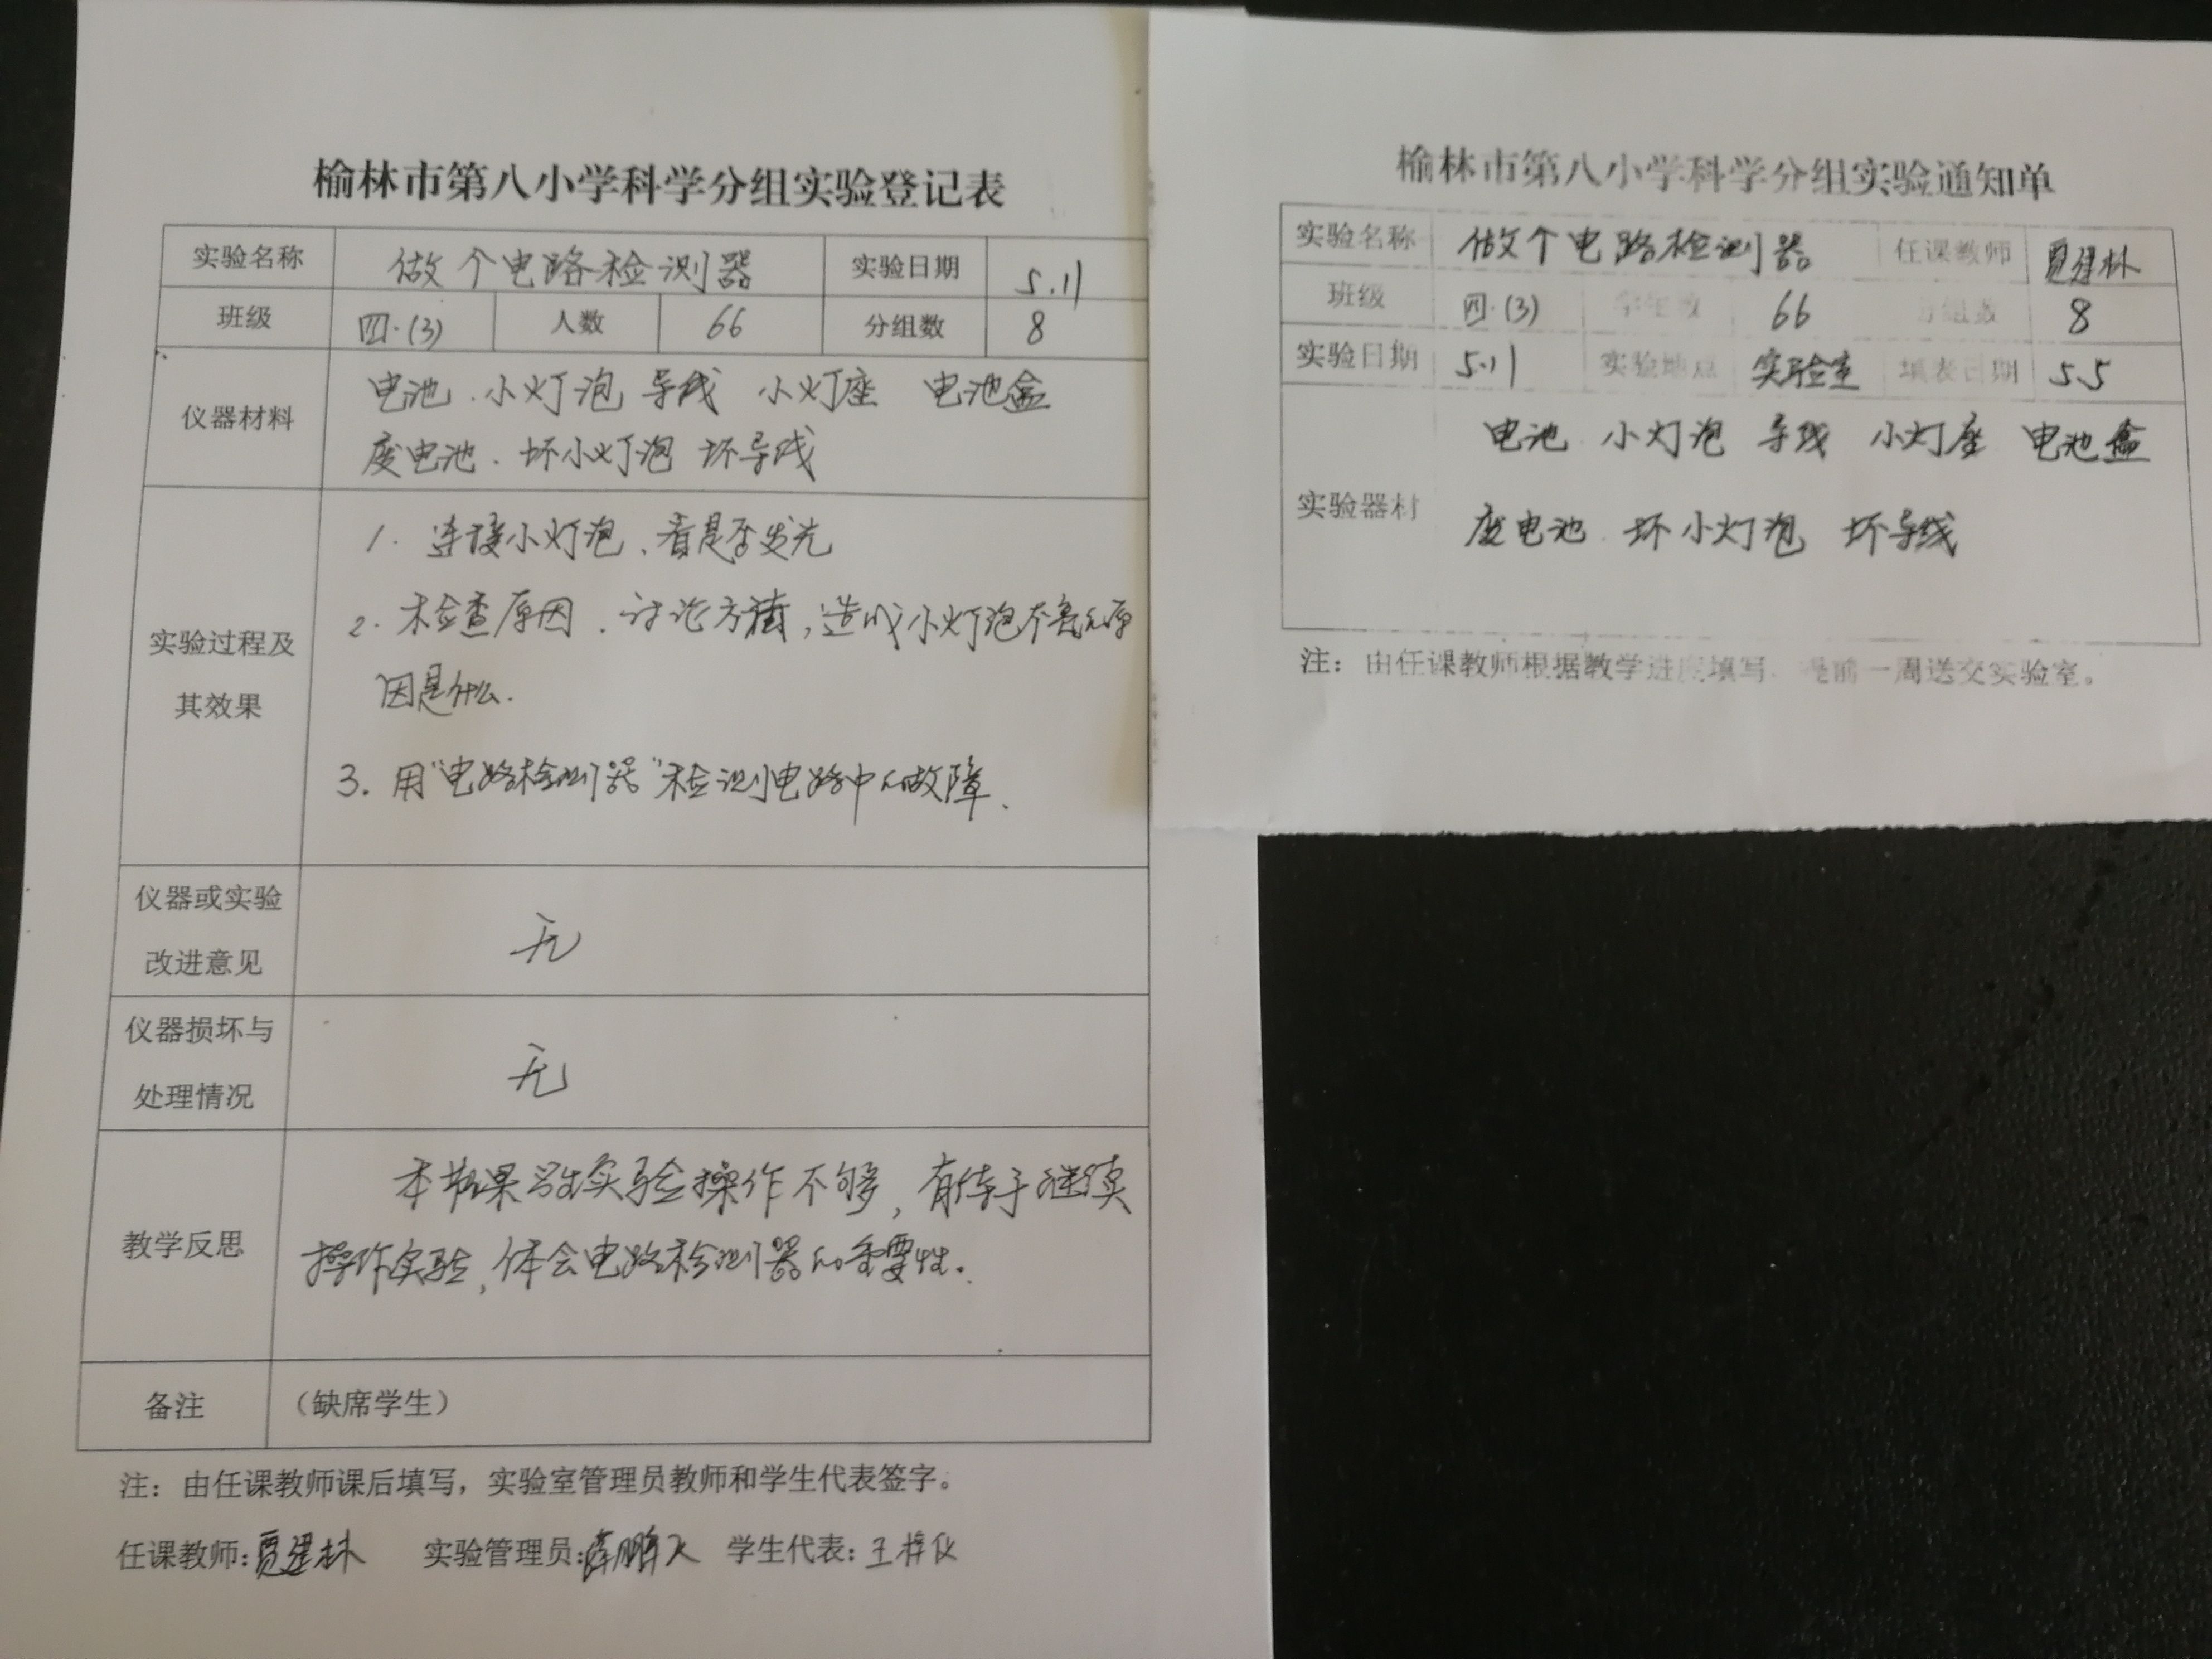 榆林市第八小学科学分组实验登记表
实验名称 做个电路检测器 实验日期 5.11
班级 四.(3) 人数 66 分组数 8
仪器材料
电池、小灯泡 导线 小灯座 电池盒
废电池、坏小灯泡 坏导线
实验过程及
其效果
1. 连接小灯泡、看是否发光
2. 检查原因、讨论方案,造成小灯泡不亮的原
因是什么.
3. 用"电路检测器"检测电路中的故障.
仪器或实验
改进意见
无
仪器损坏与
处理情况
无
教学反思
本节课学生实验操作不够,有待于继续
操作实验,体会电路检测器的重要性。
备注 (缺席学生)
注:由任课教师课后填写,实验室管理员教师和学生代表签字。
任课教师:贾建林 实验管理员: 学生代表:王梓仪
榆林市第八小学科学分组实验通知单
实验名称 做个电路检测器 任课教师 贾建林
班级 四.(3) 学生数 66 分组数 8
实验日期 5.11 实验地点 实验室 填表日期 5.5
实验器材
电池 小灯泡 导线 小灯座 电池盒
废电池 坏小灯泡 坏导线
注:由任课教师根据教学进度填写,提前一周送交实验室。